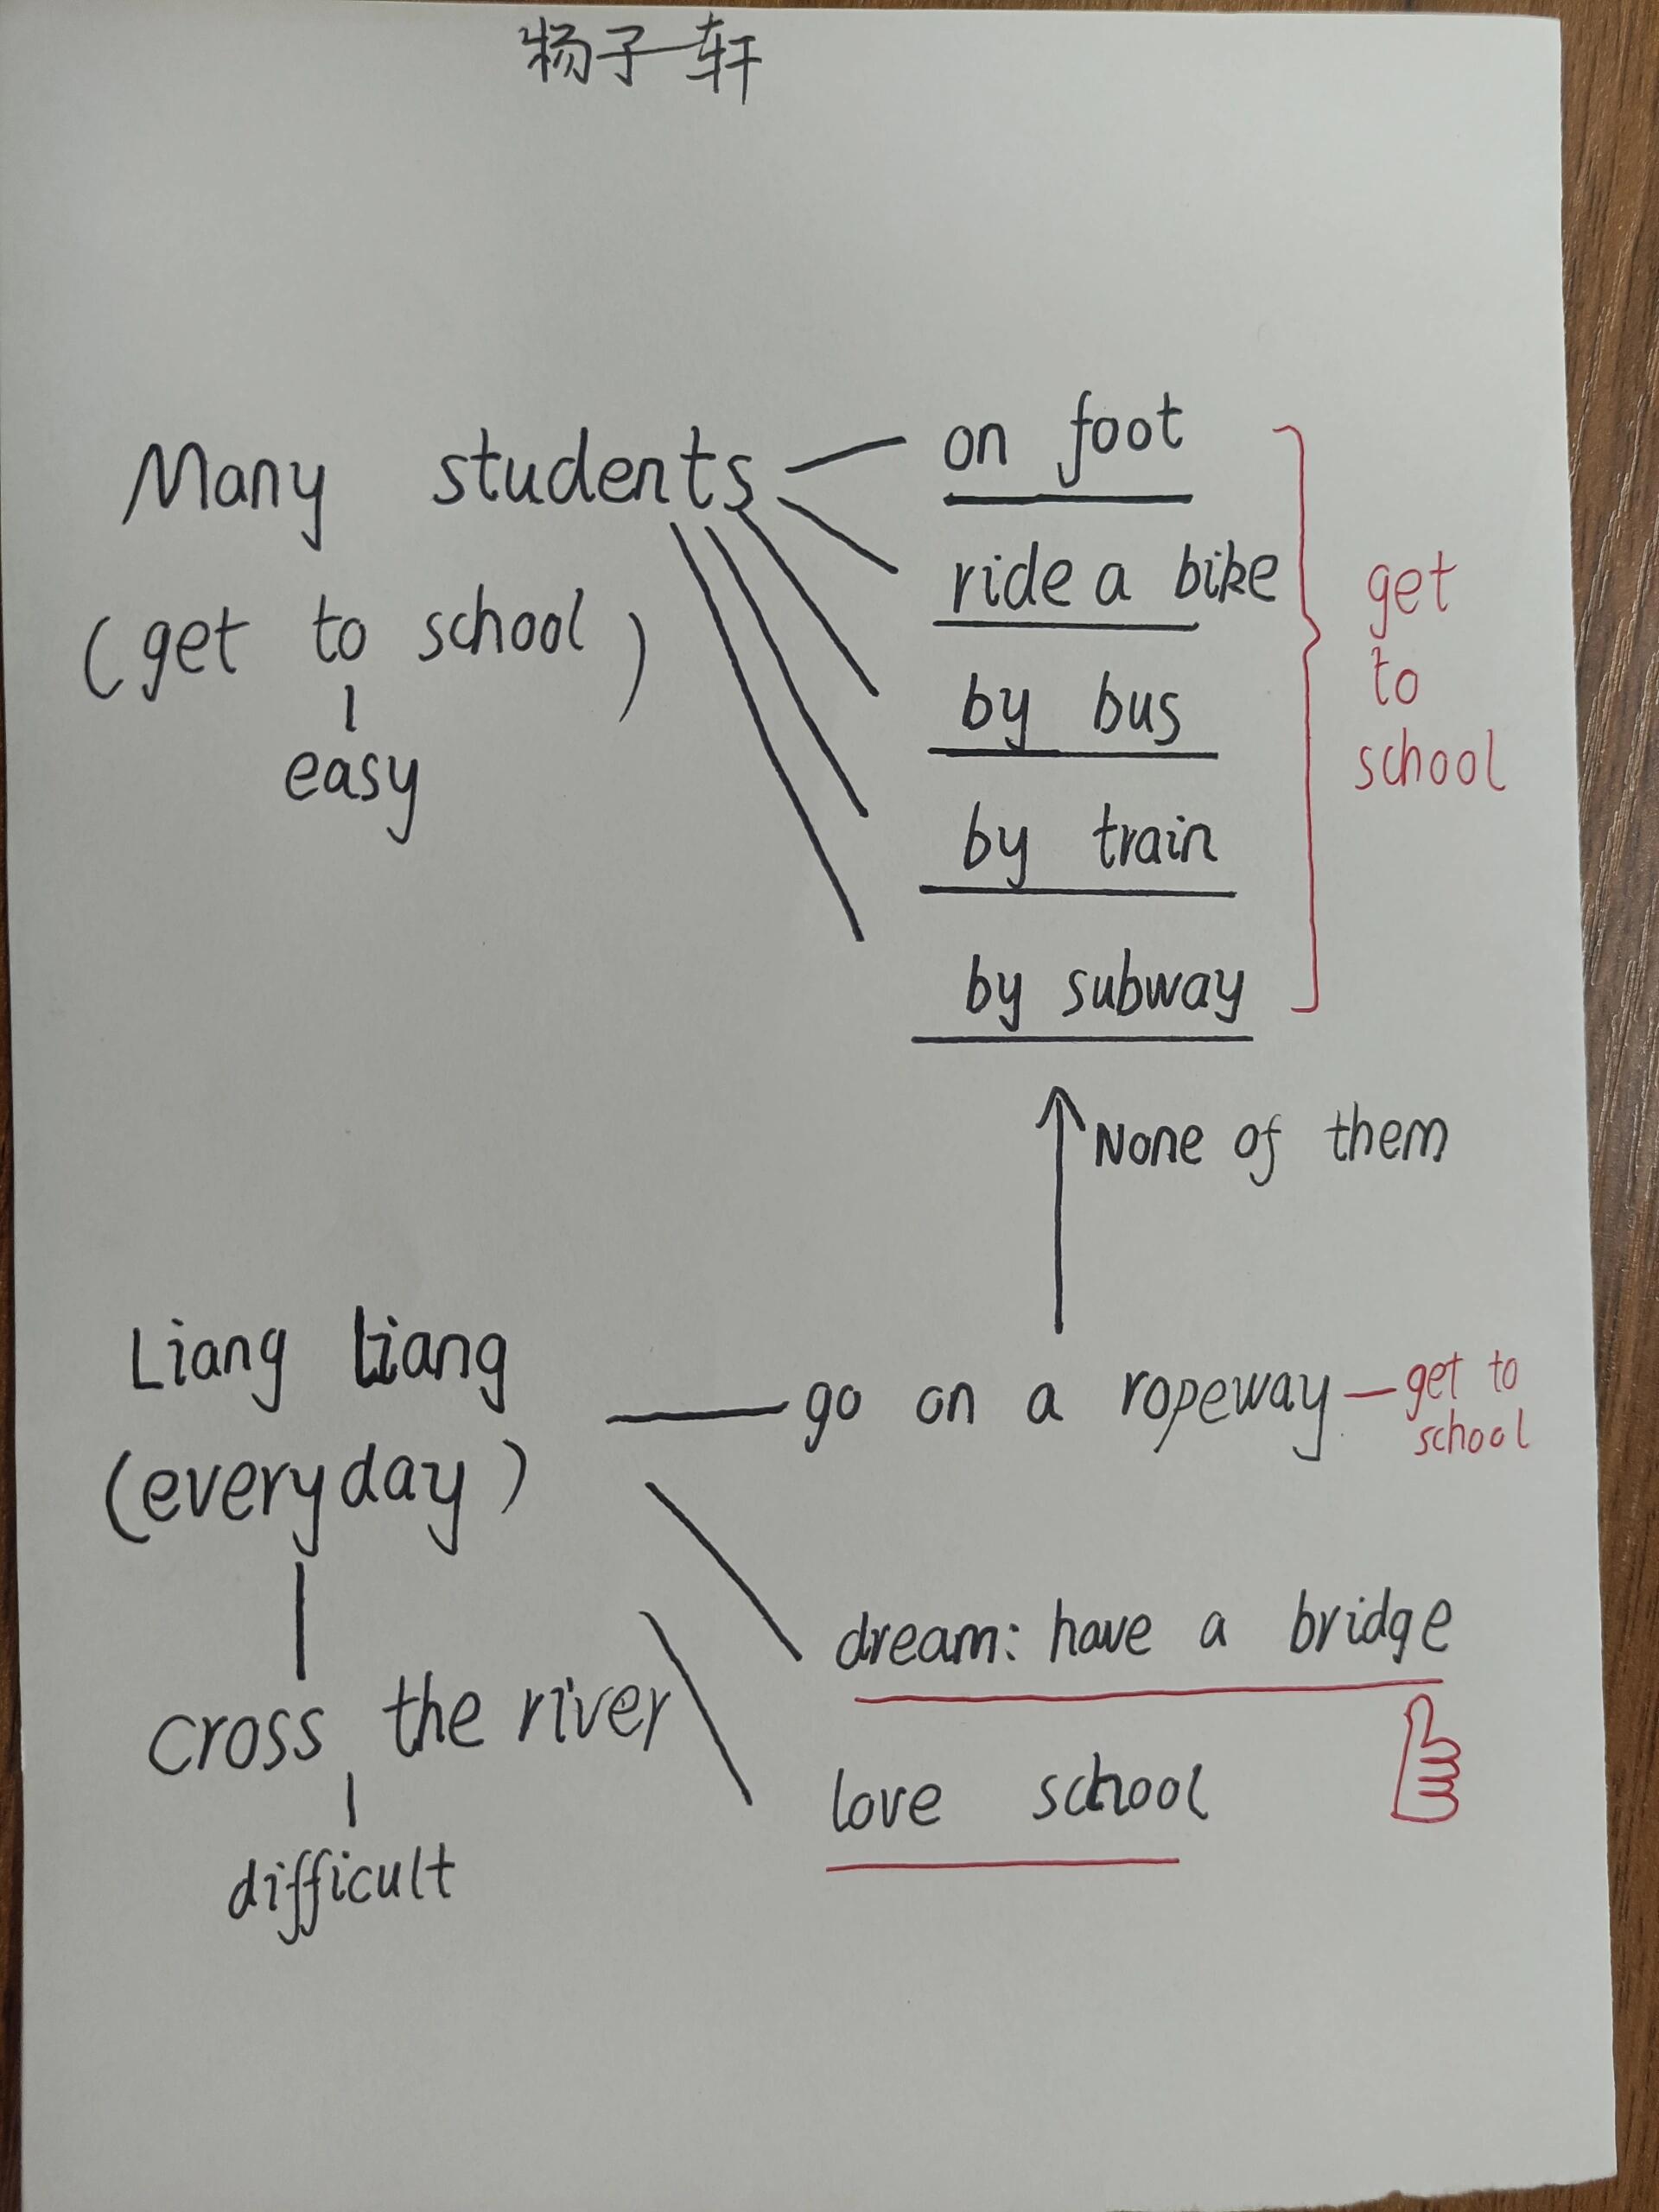 杨子轩
Many students
(get to school)
easy
on foot
ride a bike
by bus
by train
by subway
get
to
school
None of them
Liang Liang
(everyday)
cross the river
difficult
go on a ropeway
get to
school
dream: have a bridge
love school